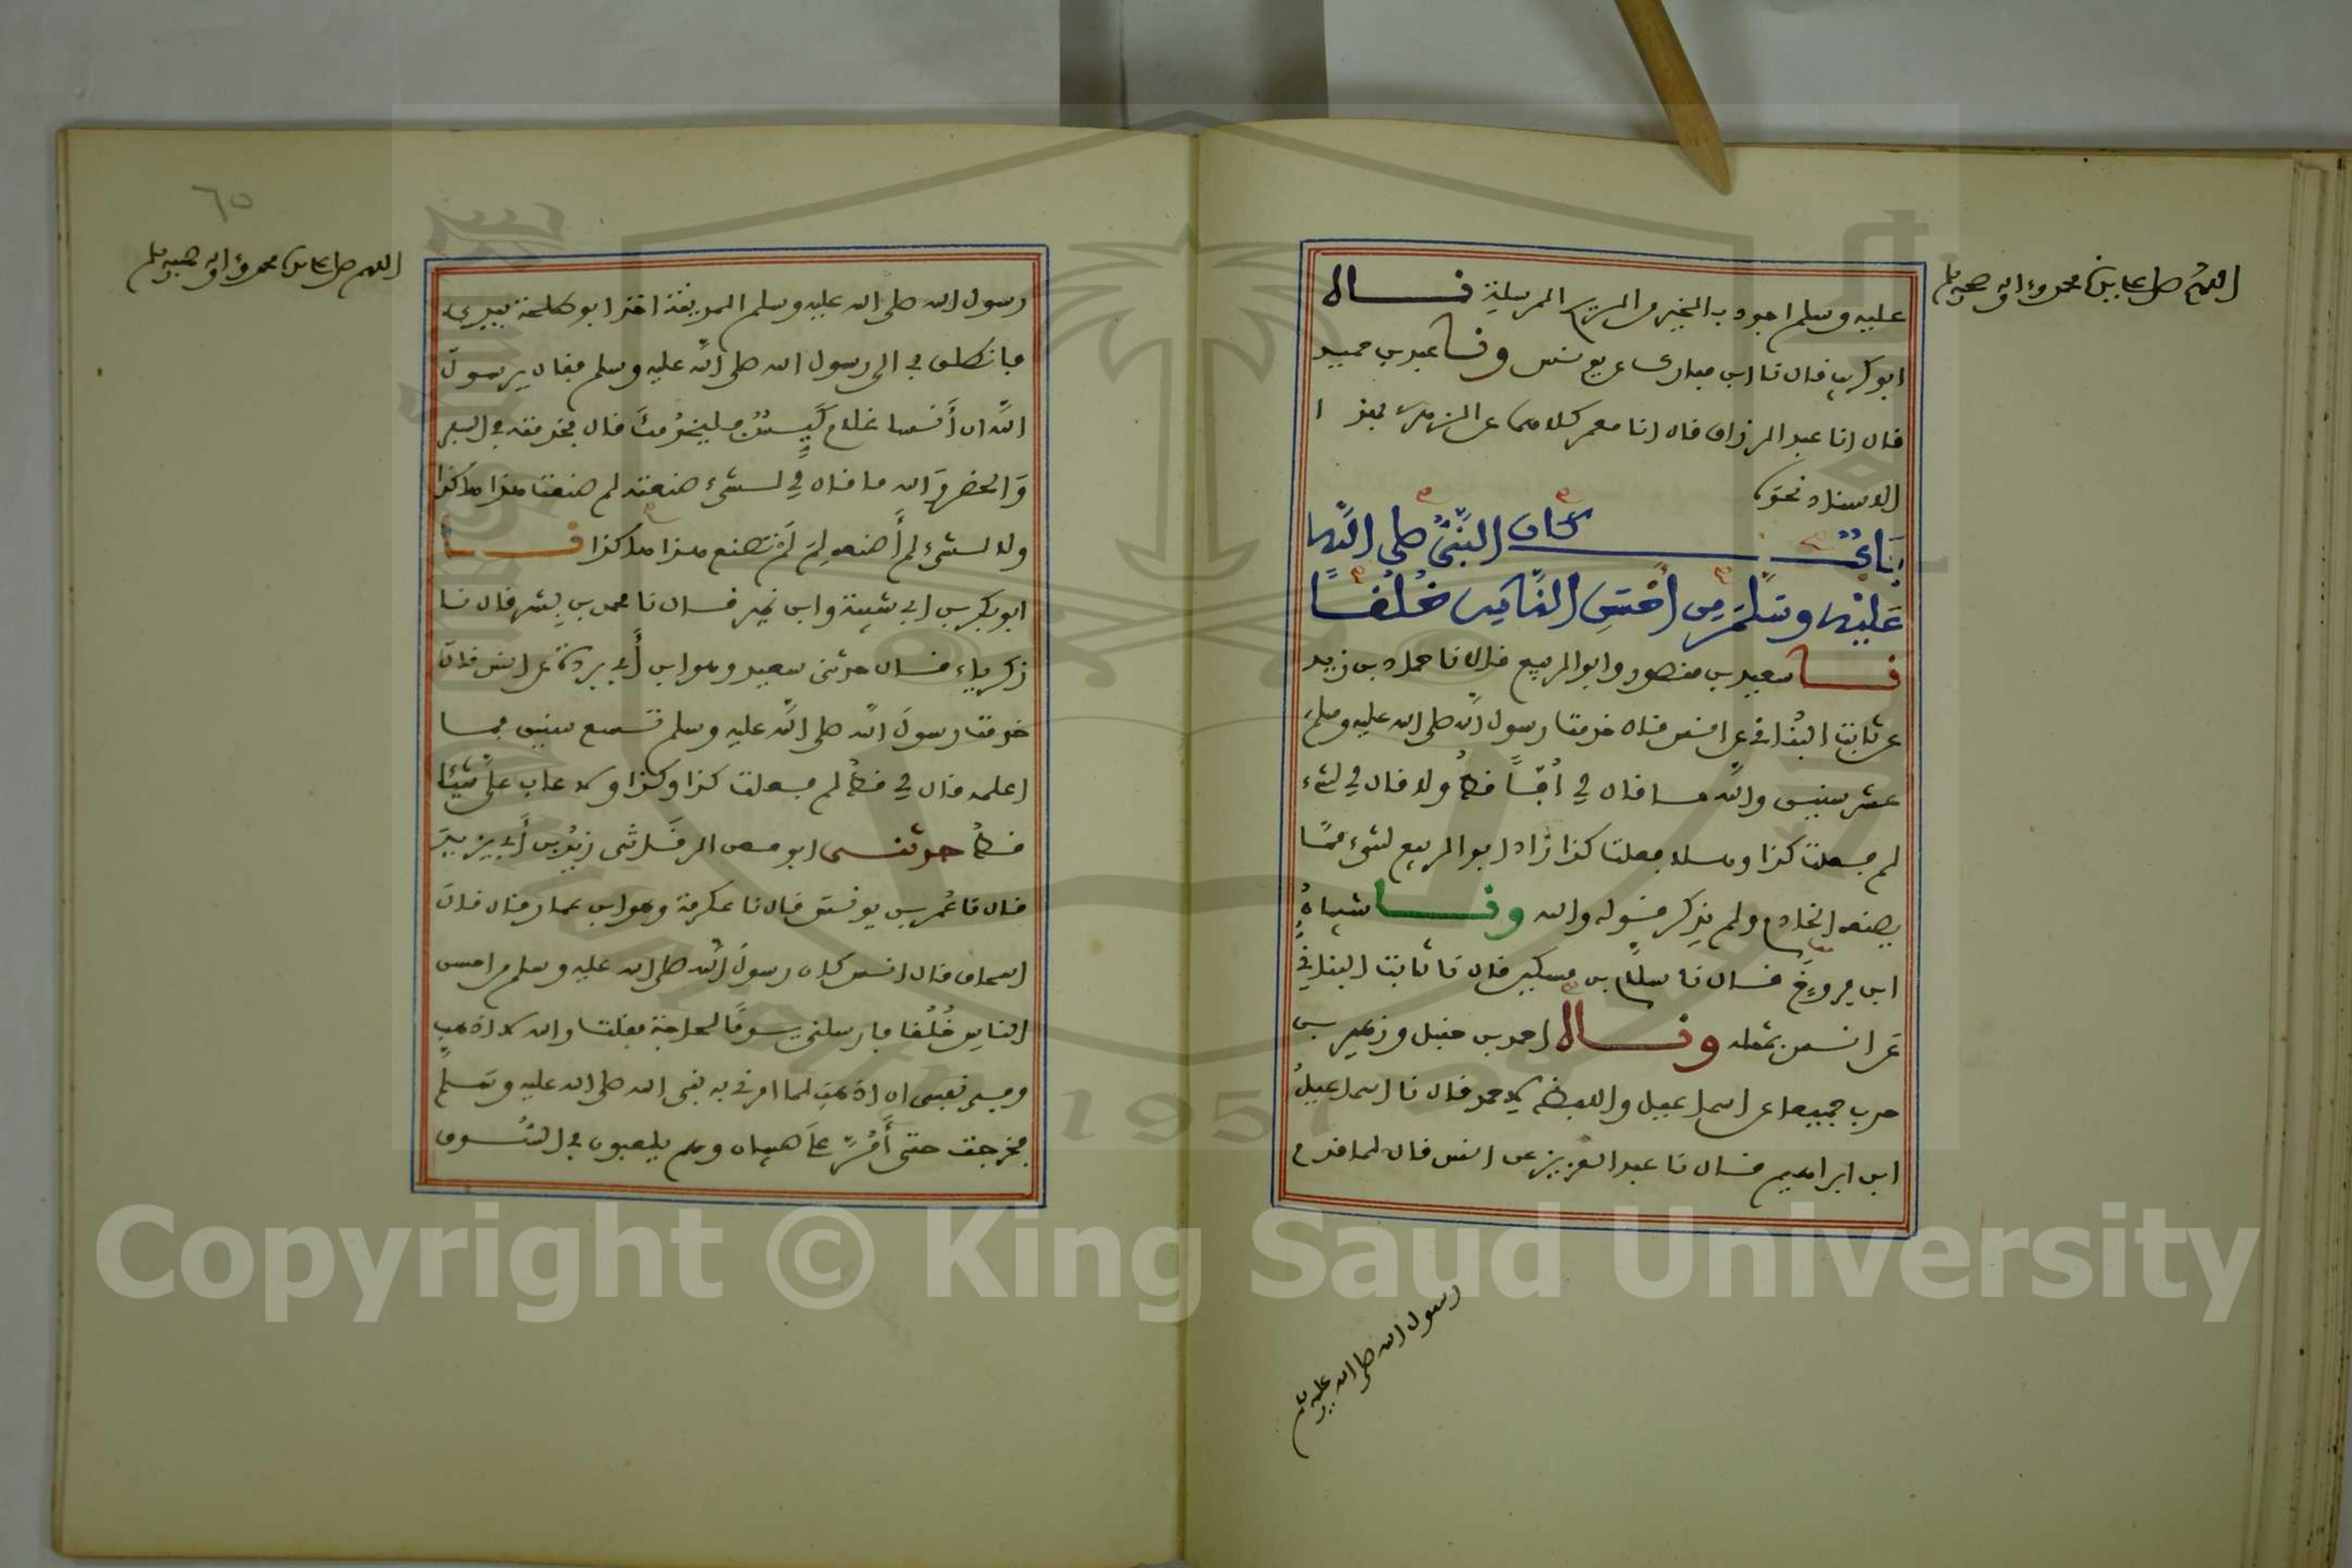 اللهم صل على سيدنا محمد وءاله وصحبه وسلم
عليه وسلم اجود بالخير من الريح المرسلة قال
ابو كريب قال نا ابن مبارك عن يونس ونا عبد بن حميد
قال انا عبد الرزاق قال انا معمر كلاهما عن الزهري بهذا
الاسناد نحوه
بَابٌ كان النَّبيُّ صلى اللَّه
عَلَيْهِ وسَلَّمَ مِن أحْسَنِ النَّاسِ خُلُقًا
نا سعيد بن منصور وابو الربيع قال نا حماد بن زيد
عن ثابت البُناني عن انس قال خدمت رسول اللَّه صلى الله عليه وسلم
عشر سنين واللَّه ما قال لي اُفًّا قطُّ ولا قال لي لشيء
لم فعلت كذا وهلا فعلت كذا زاد ابو الربيع لشيء ممَّا
يصنعه الخادم ولم يذكر قوله والله ونا شيباهُ
ابن فروخَ قال نا سلام بن مسكين قال نا ثابت البناني
عَن انس بمثله وقال احمد بن حنبل وزهير بن
حرب جميعا عن اسماعيل واللفظ لاحمد قال نا اسماعيلُ
ابن ابراهيم قال نا عبد العزيز عن انس قال لما قدم
رسول الله صلى الله عليه وسلم
٦٥
اللهم صل على سيدنا محمد وءاله وصحبه وسلم
رسول الله صلى الله عليه وسلم المدينة اخذ ابو طلحة بيدي
فانطلق بي الى رسول الله صلى اللَّه عليه وسلم فقال يرسولَ
اللَّه ان أَنسا غلام كَيِّسٌ فليخدُمكَ قال فخدمته في السفر
وَالحضر والله ما قال لي لشيء صنعته لم صنعت هذا هاكذا
ولا لشيء لم أَصنعه لِمَ لَمْ تصنع هذا هاكذا نا
ابو بكر بن ابي شيبة وابن نمير قال نا محمد بن بِشر قال نا
زكرياء قال حدثني سعيد وهو ابن أَبي بردة عن انس قال
خدمت رسولَ اللَّه صلى اللَّه عليه وسلم تسع سنين فما
اعلمه قال لي قطُّ لم فعلت كذا وكذا ولا عاب عليَّ شيئًا
قطُّ حدثنى ابو معن الرقَاشى زيدُ بن أَبي يزيدَ
قال نا عُمر بن يونس قال نا عكرمة وهو ابن عمار قال قالَ
اسحاق قال انس كان رسولُ اللَّه صلى الله عليه وسلم من احسن
الناس خُلُقا فارسلني يومًا لحاجة فقلت والله لا اذهب
وفي نفسى ان اذهبَ لما امرني به نبى الله صلى الله عليه وسلم
فخرجت حتى أَمُرَّ على صبيان وهم يلعبون في السُّوق
Copyright © King Saud University
1957